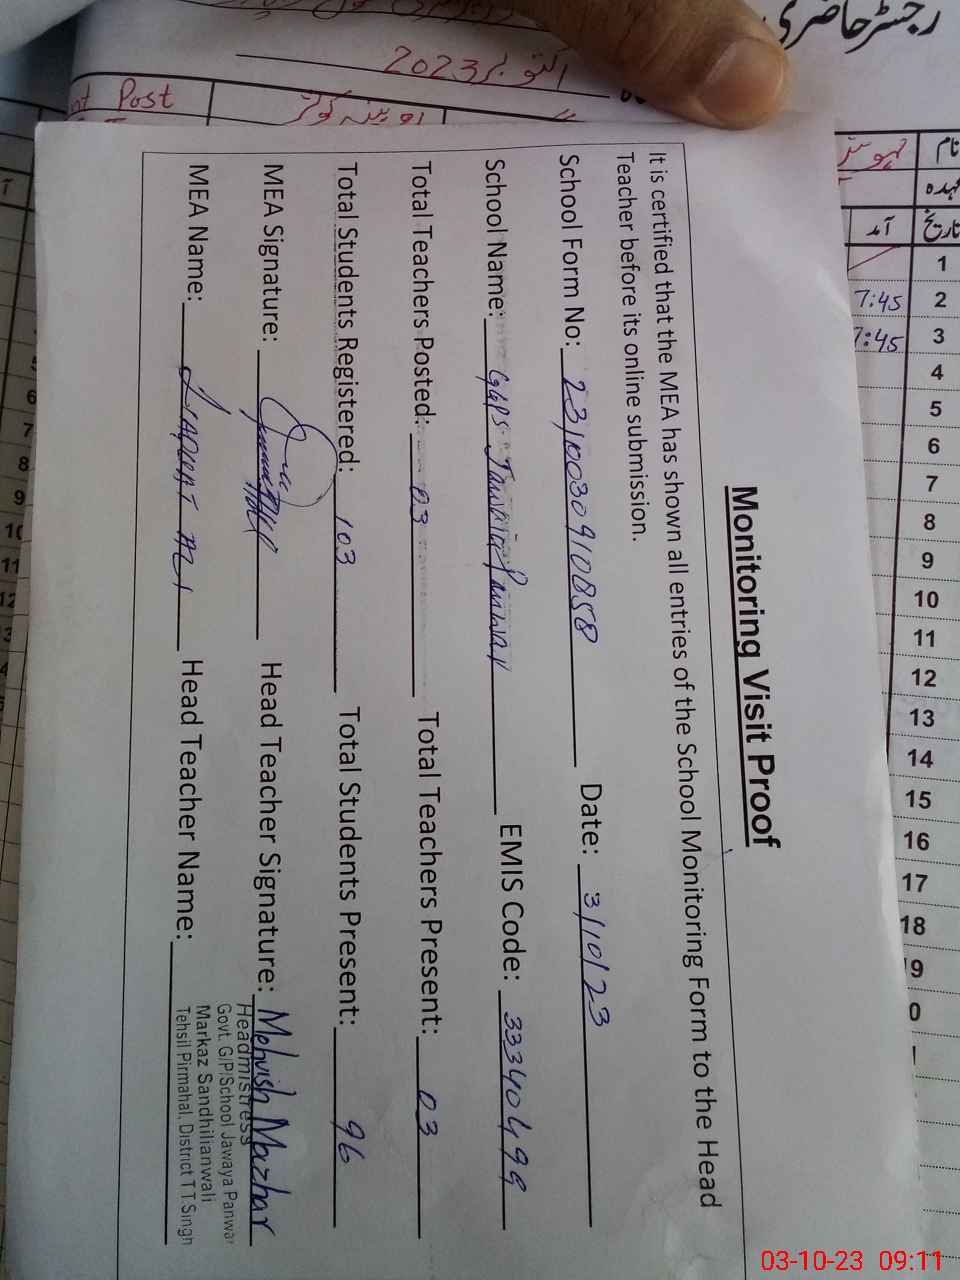 Monitoring Visit Proof
It is certified that the MEA has shown all entries of the School Monitoring Form to the Head
Teacher before its online submission.
School Form No: 2310030910858 Date: 3/10/23
School Name: GGPS Jawaia Panwar EMIS Code: 33340499
Total Teachers Posted: 03 Total Teachers Present: 03
Total Students Registered: 103 Total Students Present: 96
MEA Signature: Head Teacher Signature: Mehvish Mazhar
MEA Name: Liaquat Ali Head Teacher Name:
Headmistress
Govt. G/P/School Jawaya Panwar
Markaz Sandhilianwali
Tehsil Pirmahal, District T.T.Singh
رجسٹر حاضری
اکتوبر 2023
Post
نام
عہدہ
تاریخ آمد
1
2 7:45
3 7:45
4
5
6
7
8
9
10
11
12
13
14
15
16
17
18
03-10-23 09:11